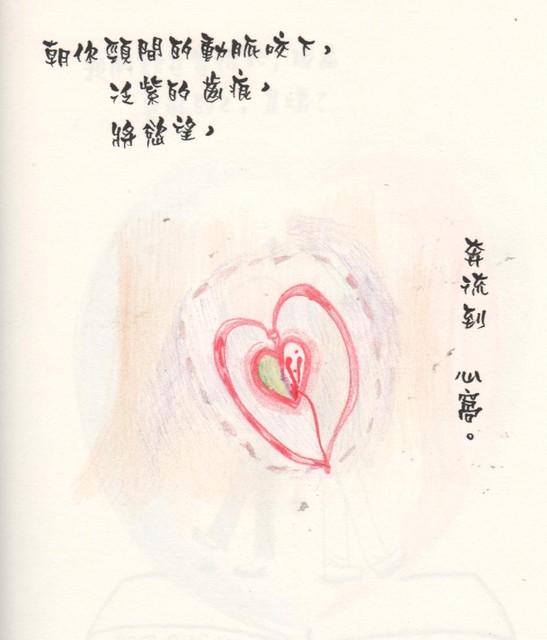 朝你頸間的動脈咬下，
泛紫的齒痕，
將慾望，
奔流到　心窩。